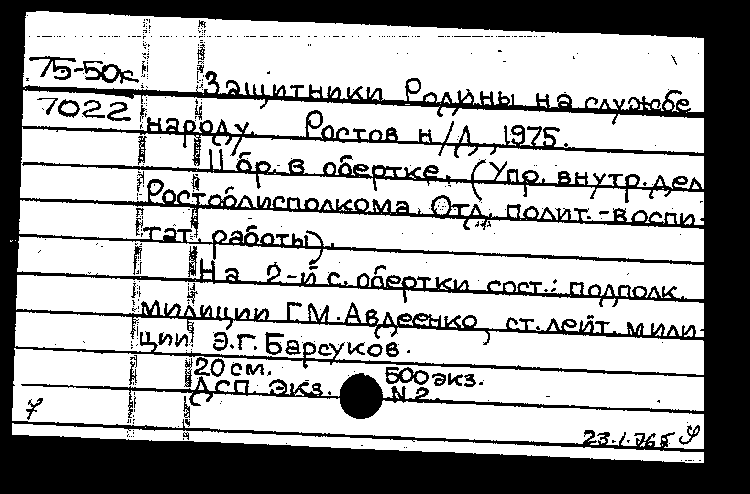 75-50к
7022
Защитники Родины на службе
народу. Ростов н/Д, 1975.
11 бр. в обертке. (Упр. внутр. дел
Ростоблисполкома. Отд. полит.-воспи-
тат. работы).
На 2-й с. обертки сост.: подполк.
милиции Г.М. Авдеенко, ст. лейт. мили-
ции Э.Г. Барсуков.
20 см. 500 экз.
ДСП экз. N 2.
7